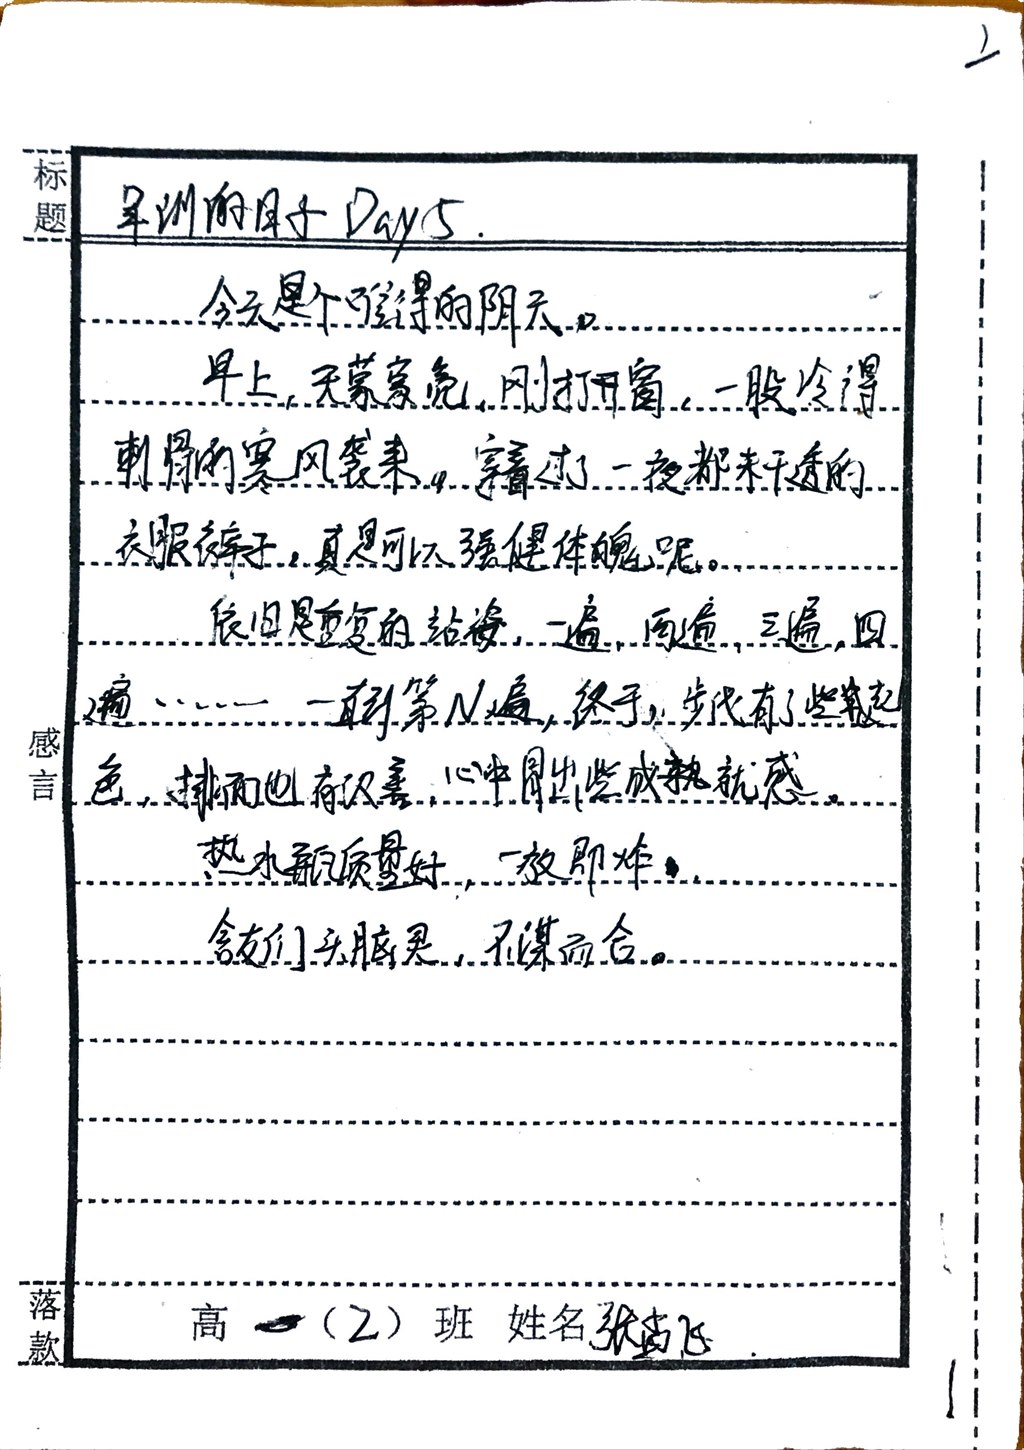 标题
军训的日子 Day 5.
今天是个难得的阴天。
早上,天蒙蒙亮,刚打开窗,一股冷得
刺骨的寒风袭来。穿着过了一夜都未干透的
衣服裤子,真是可以强健体魄呢。
依旧是重复的站姿,一遍,两遍,三遍,四
遍……一直到第N遍,终于,步伐有了些起
色,排面也有改善,心中冒出些成就感。
热水瓶质量好,一放即炸。
舍友们头脑灵,不谋而合。
感言
落款
高一(2)班 姓名张尚飞